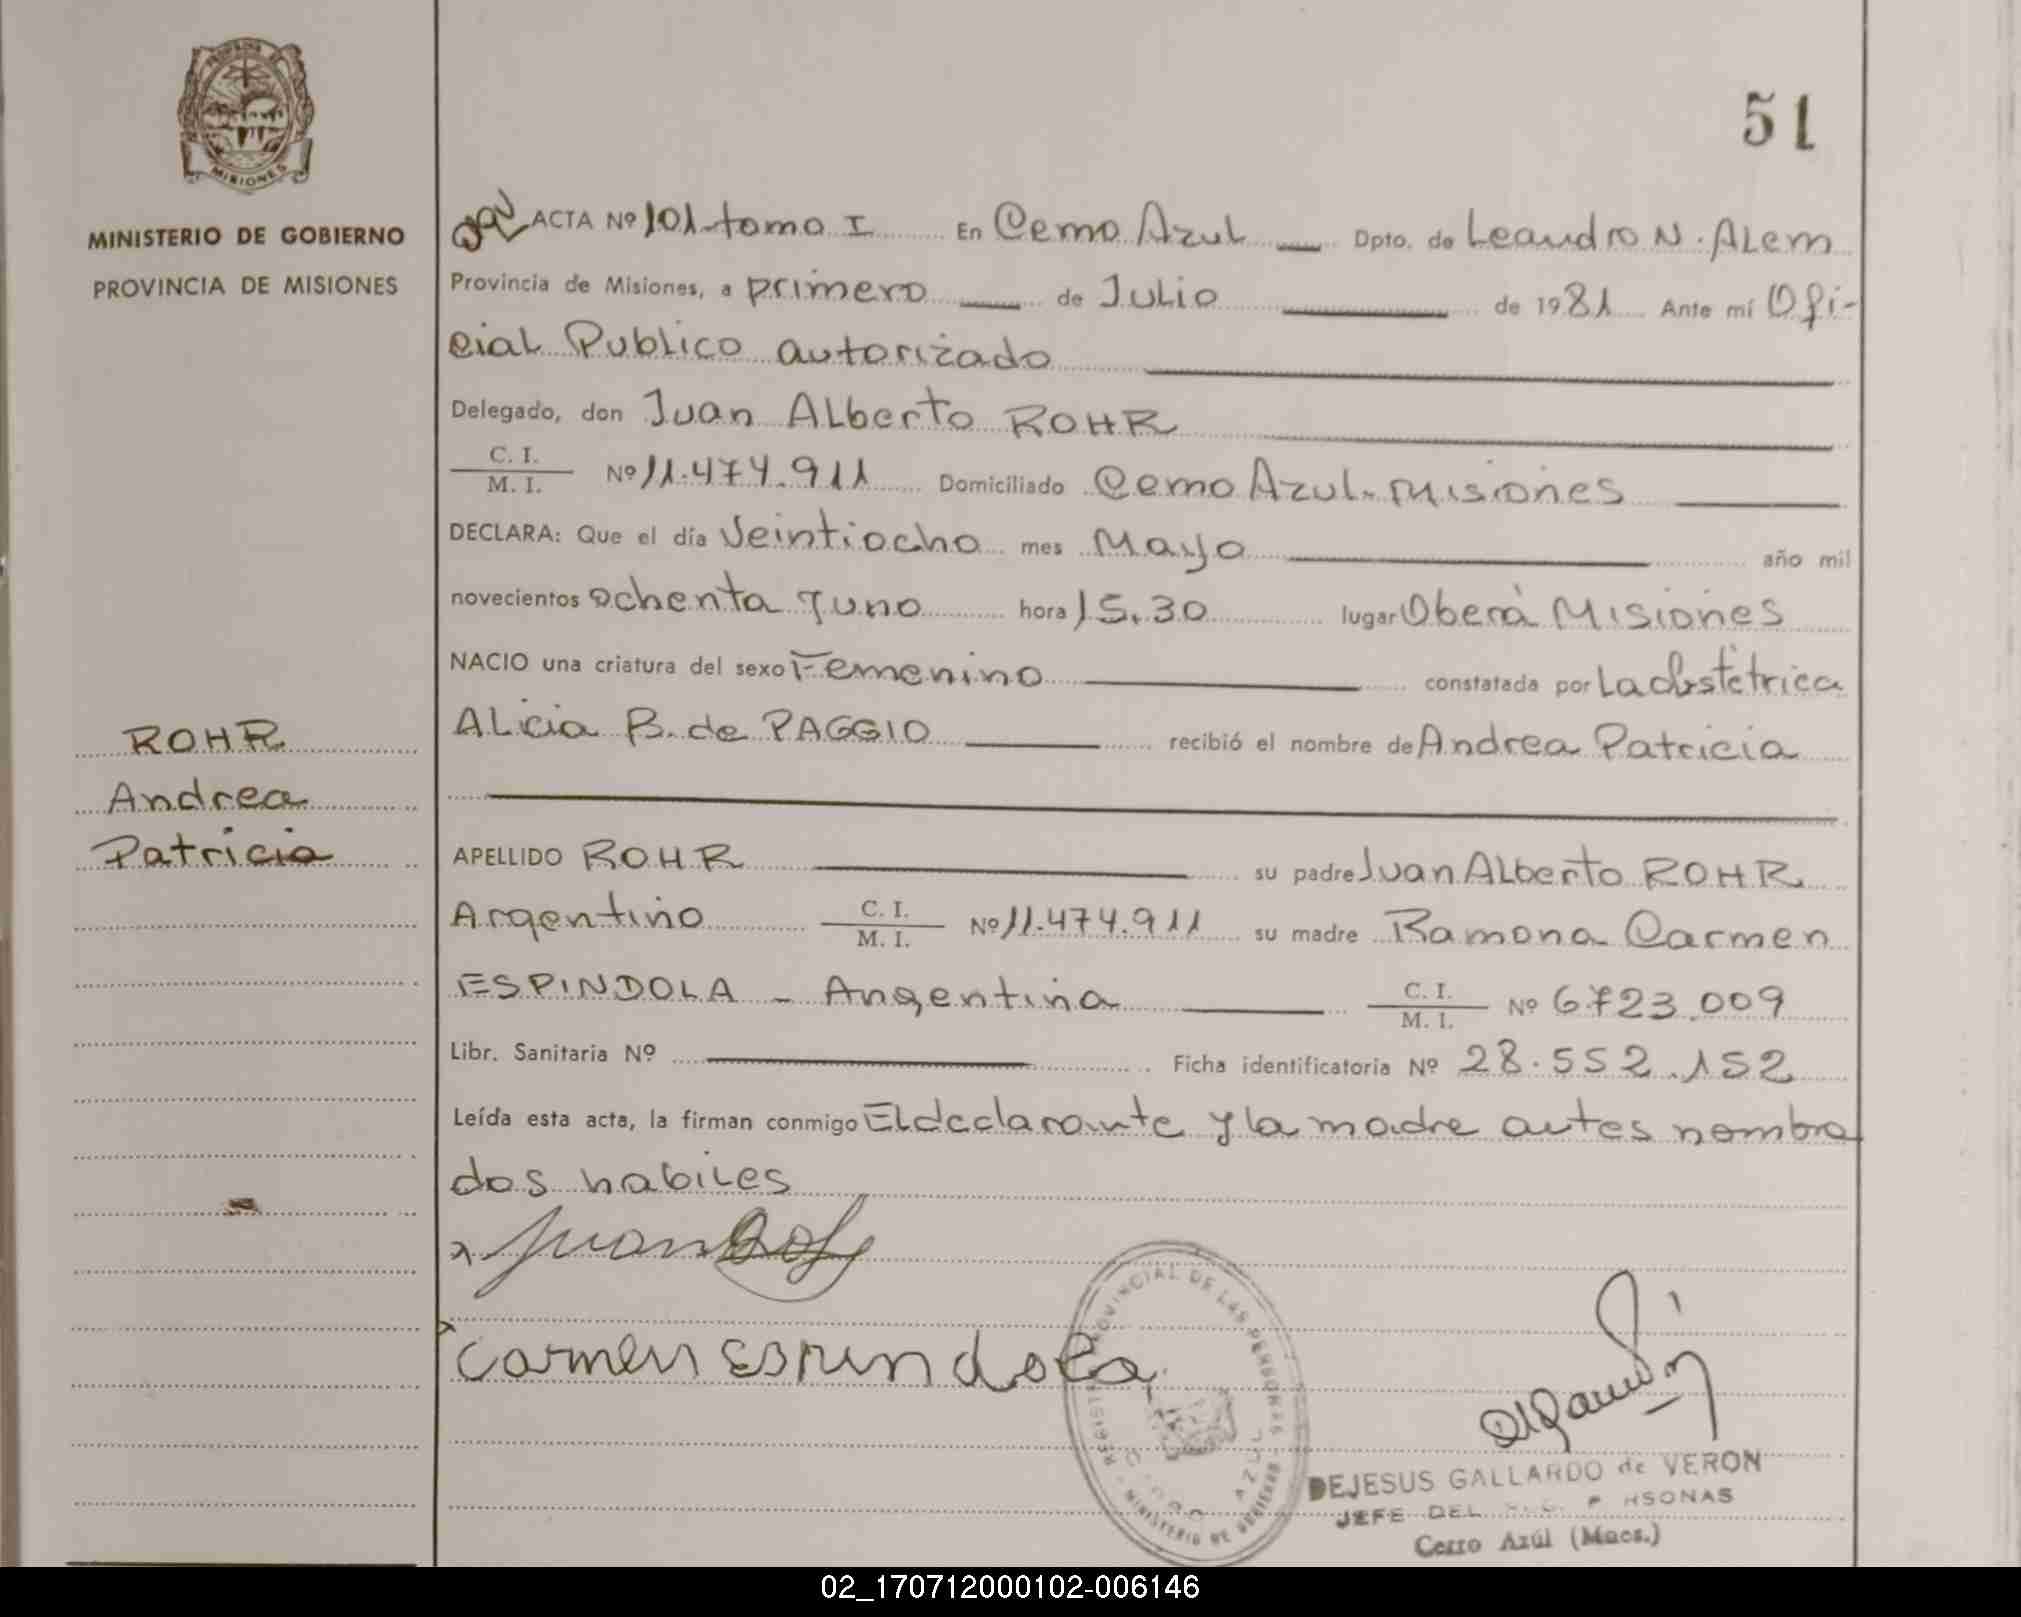 MISIONES
MINISTERIO DE GOBIERNO
PROVINCIA DE MISIONES
51
ACTA Nº 101-tomo I En Cerro Azul Dpto. de Leandro N. Alem
Provincia de Misiones, a primero de Julio de 1981 Ante mí Ofi-
cial Publico autorizado
Delegado, don Juan Alberto ROHR
C. I.
M. I. Nº 11.474.911 Domiciliado Cerro Azul-Misiones
DECLARA: Que el día Veintiocho mes Mayo año mil
novecientos ochenta y uno hora 15.30 lugar Oberá Misiones
NACIO una criatura del sexo Femenino constatada por La obstétrica
Alicia B. de PAGGIO recibió el nombre de Andrea Patricia
ROHR
Andrea
Patricia
APELLIDO ROHR su padre Juan Alberto ROHR
Argentino C. I.
M. I. Nº 11.474.911 su madre Ramona Carmen
ESPINDOLA - Argentina C. I.
M. I. Nº 6723.009
Libr. Sanitaria Nº Ficha identificatoria Nº 28.552.152
Leída esta acta, la firman conmigo El declarante y la madre antes nombra
dos habiles
Juan
Carmen Espindola
REGISTRO PROVINCIAL DE LAS PERSONAS - MINISTERIO DE GOBIERNO
AZUL
DEJESUS GALLARDO de VERON
JEFE DEL
Cerro Azúl (Mnes.)
02_170712000102-006146